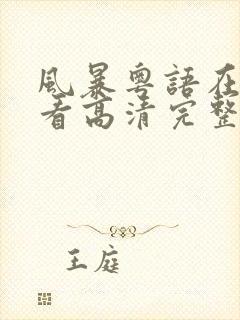 風暴粵語在
看高清完整
王庭